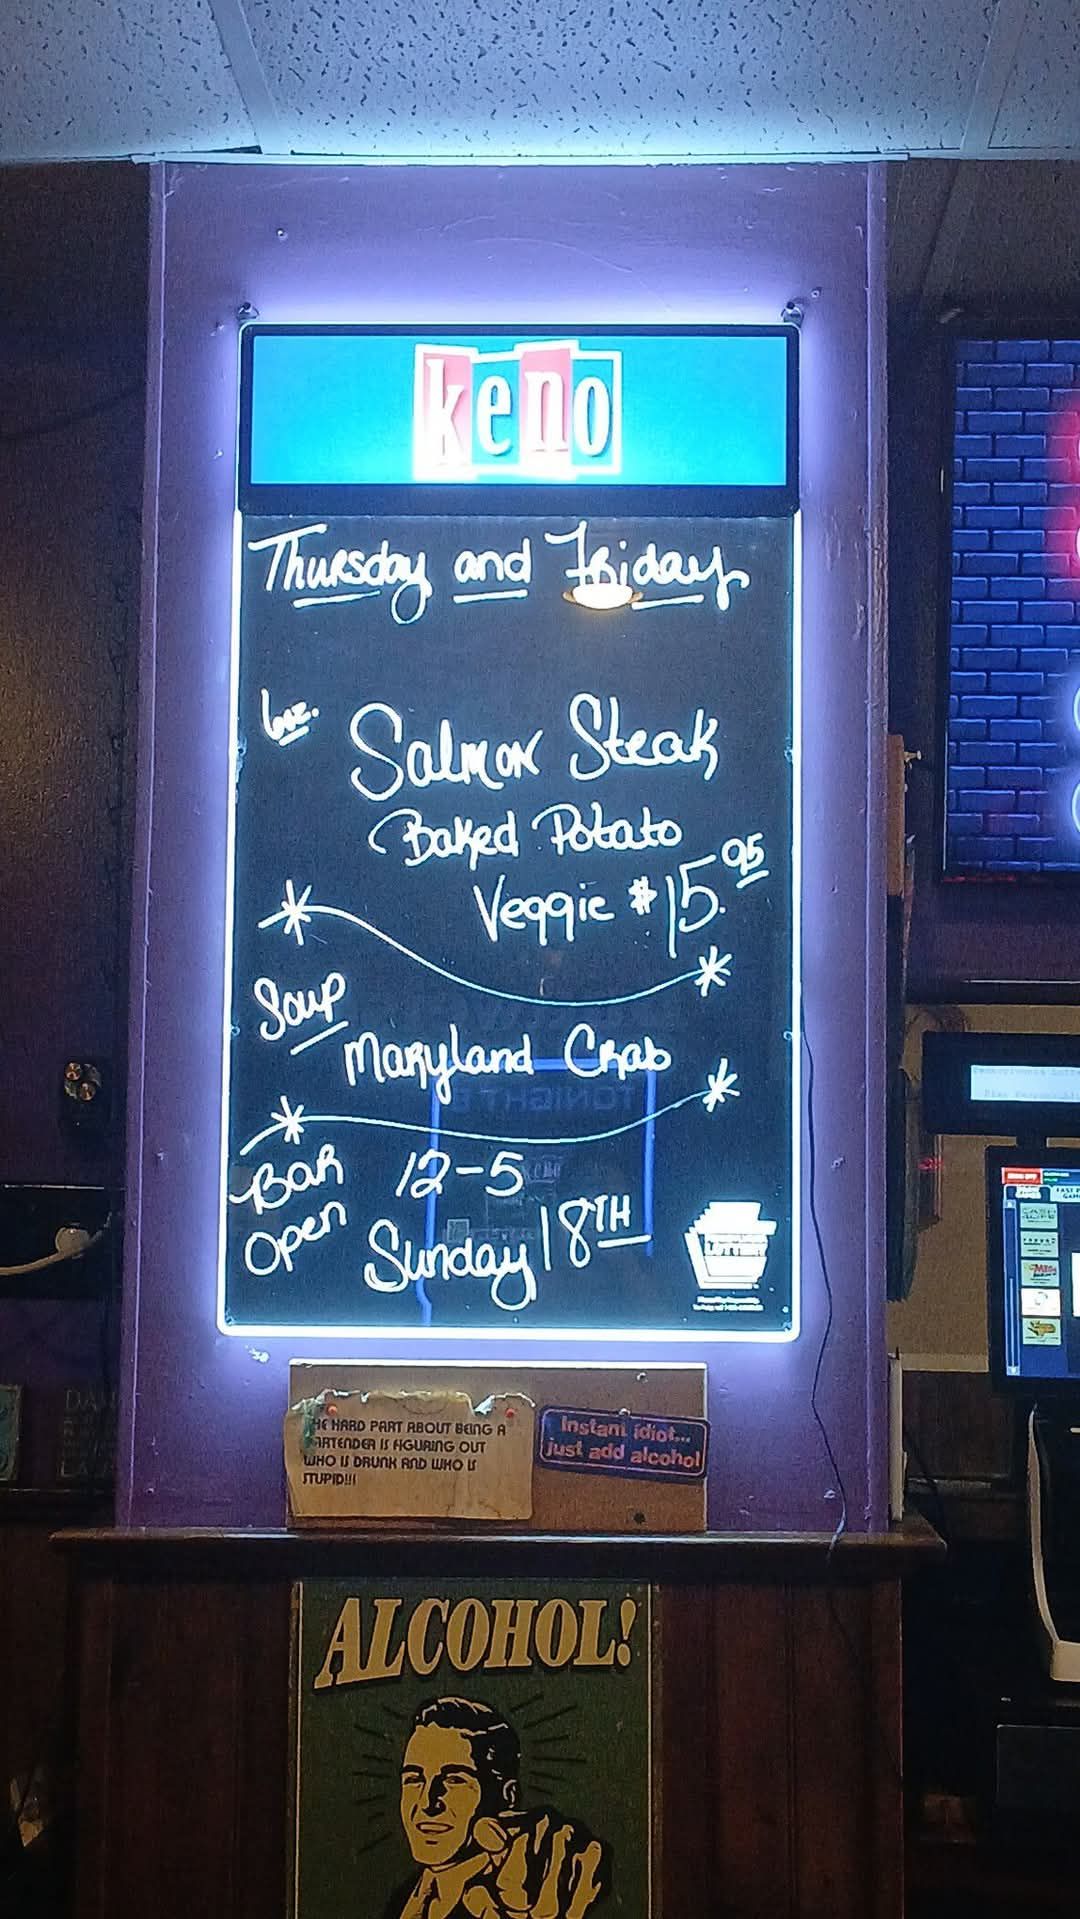 keno
Thursday and Friday
6oz.
Salmon Steak
Baked Potato
Veggie $15.95
Soup
Maryland Crab
Bar Open
12-5
Sunday 18TH
LOTTERY
TONIGHT
THE HARD PART ABOUT BEING A
BARTENDER IS FIGURING OUT
WHO IS DRUNK AND WHO IS
STUPID!!!
Instant idiot...
just add alcohol
ALCOHOL!